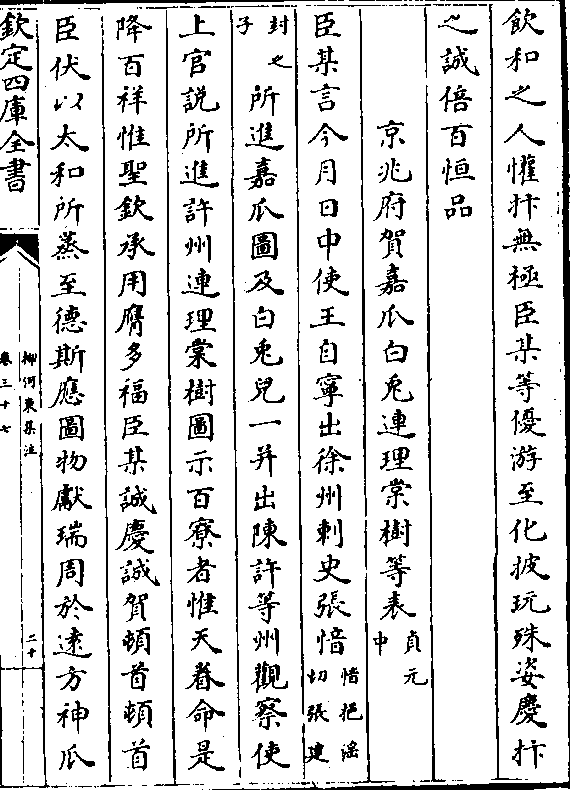 飲和之人懽抃無極臣某等優游至化披玩殊姿慶抃
之誠倍百恒品
京兆府賀嘉瓜白兔連理棠樹等表貞元中
臣某言今月日中使王自寧出徐州刺史張愔愔挹滛切張建
封之子所進嘉瓜圖及白兔兒一并出陳許等州觀察使
上官説所進許州連理棠樹圖示百寮者惟天眷命是
降百祥惟聖欽承用膺多福臣某誠慶誠賀頓首頓首
臣伏以太和所蒸至德斯應圖物獻瑞周於遠方神瓜
欽定四庫全書
柳河東集注
卷三十七
二十